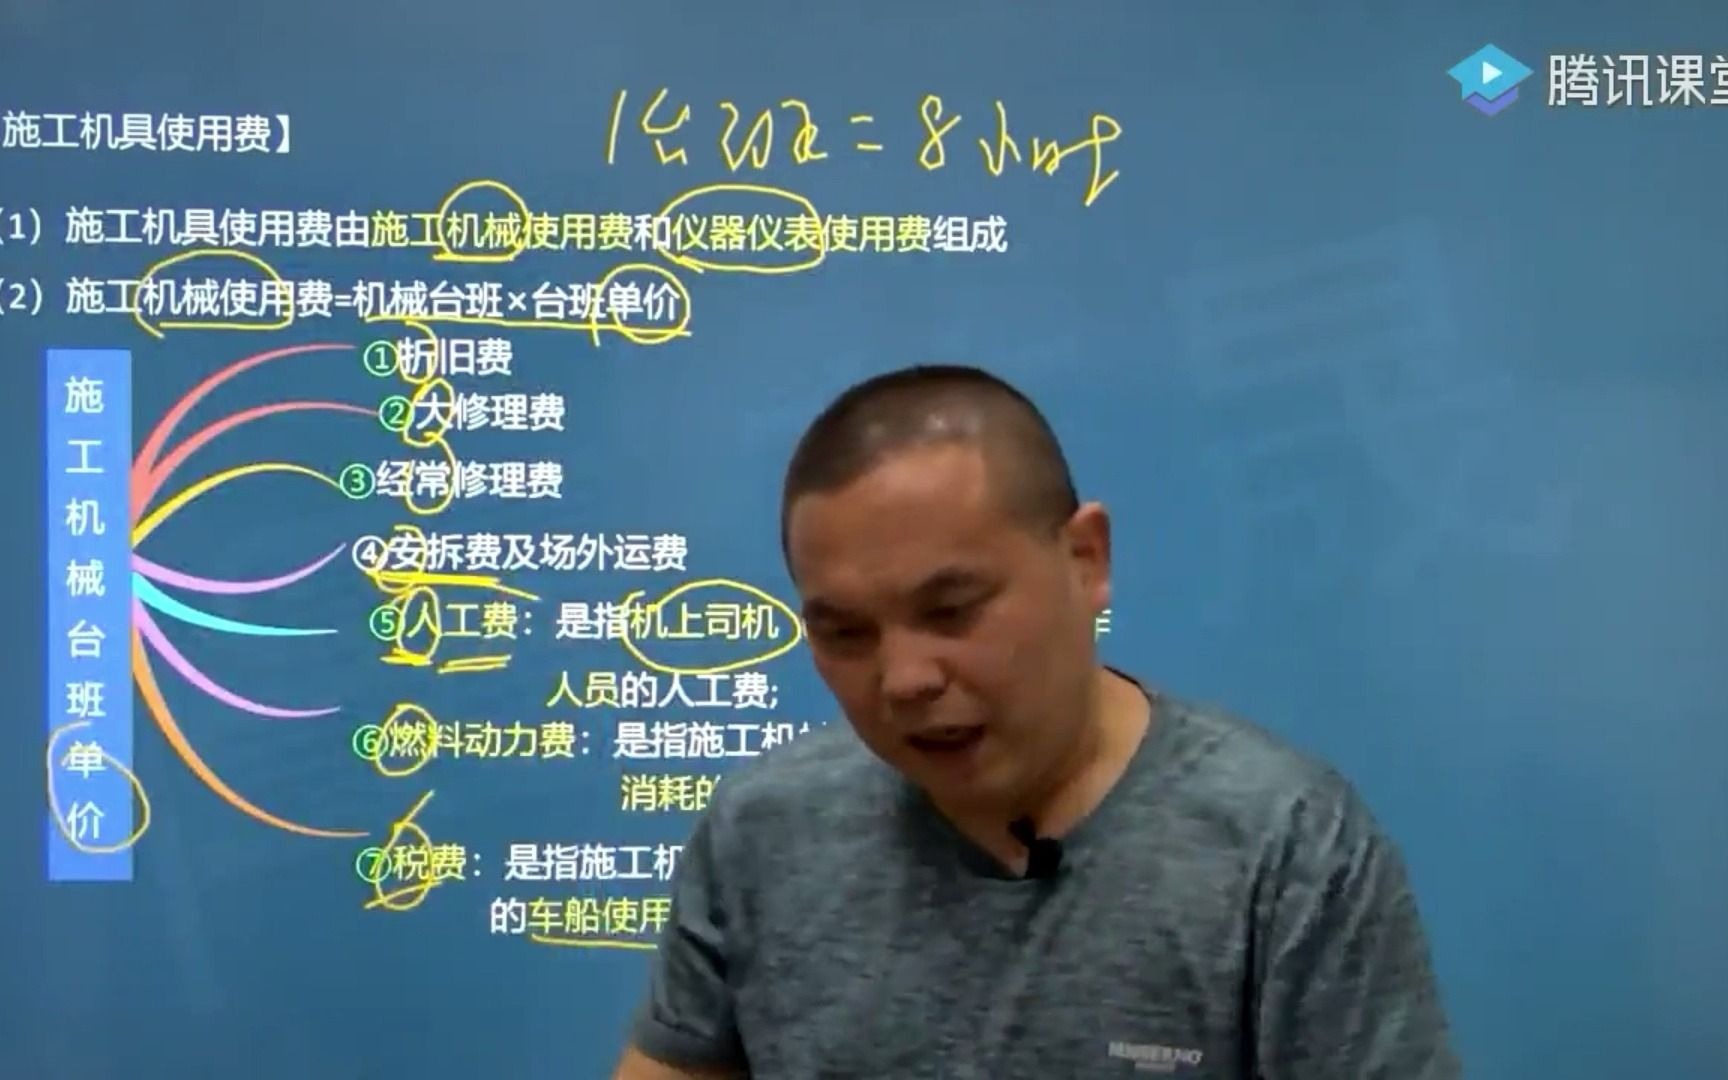 腾讯课堂
施工机具使用费】
1台班=8小时
（1）施工机具使用费由施工机械使用费和仪器仪表使用费组成
（2）施工机械使用费=机械台班×台班单价
施工机械台班单价
①折旧费
②大修理费
③经常修理费
④安拆费及场外运费
⑤人工费：是指机上司机
人员的人工费;
⑥燃料动力费：是指施工机
消耗的
⑦税费：是指施工机
的车船使用